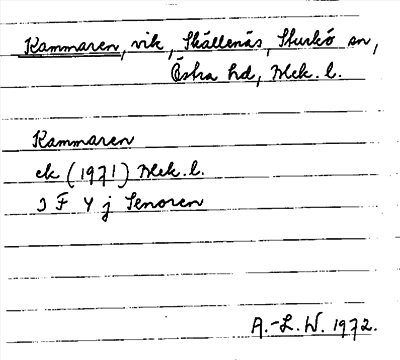 Kammaren, vik, Skällenäs, Sturkö sn,
Östra hd, Blek. l.
Kammaren
ek (1971) Blek. l.
3 F 4 j Senoren
A.-L. W. 1972.